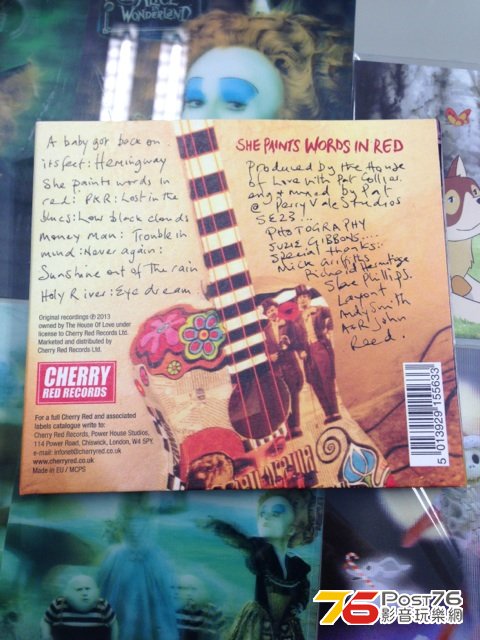 ALICE
IN
WONDERLAND
A baby got back on
its feet: Hemingway
She paints words in
red: PKR: Lost in the
blues: Low black clouds
Money man: Trouble in
mind: Never again:
Sunshine out of the rain
Holy River: Eye dream
SHE PAINTS WORDS IN RED
Produced by the House
of Love with Pat Collier
eng + mixed by Pat
@ Perry Vale Studios
SE23...
PHOTOGRAPHY
SUZIE GIBBONS....
Special thanks:
Nick Griffiths
Richard
Steve Phillips.
Layout:
Andy Smith
A&R John
Reed.
Original recordings ℗ 2013
owned by The House Of Love under
license to Cherry Red Records Ltd.
Marketed and distributed by
Cherry Red Records Ltd.
CHERRY
RED RECORDS
For a full Cherry Red and associated
labels catalogue write to:
Cherry Red Records, Power House Studios,
114 Power Road, Chiswick, London, W4 5PY.
e-mail: infonet@cherryred.co.uk
www.cherryred.co.uk
Made in EU / MCPS
5 013929 155633
76 Post76
影音玩樂網